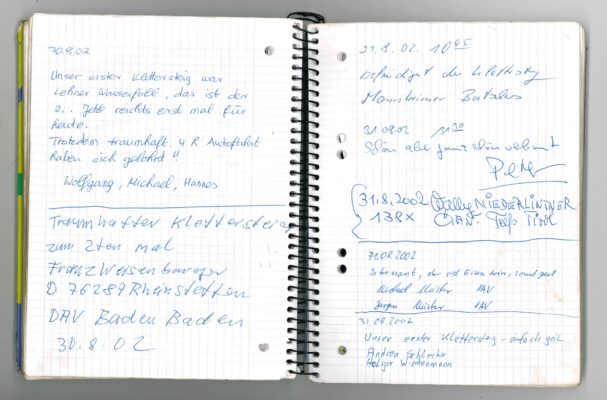 30.8.02
Unser erster Klettersteig war
Lehner Wasserfall, das ist der
2.. Jetzt reichts erst mal für
heute.
Trotzdem traumhaft. 4 h Autofahrt
haben sich gelohnt!!
Wolfgang, Michael, Hannes
Traumhafter Klettersteig
zum 2ten mal
Franz Weisenburger
D 76287 Rheinstetten
DAV Baden Baden
30.8.02
31.8.02. 10 45
der Klettersteig
Mannheimer
31.08.02 11 30
Schön aber ganz schön
Peter
31.8.2002 Willy NIEDERLINTNER
138X ÖAV. Telfs Tirol
31.08.2002
Interessant, der mit Eisen
Michael Meister DAV
Jürgen Meister DAV
31.08.2002
Unser erster Klettersteig - einfach geil
Andrea Schlecher
Holger Wiedenmann